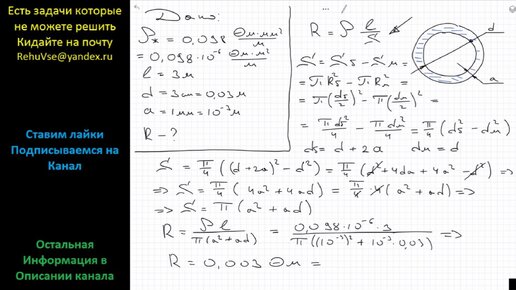 Есть задачи которые
не можете решить
Кидайте на почту
RehuVse@yandex.ru
Ставим лайки
Подписываемся на
Канал
Остальная
Информация в
Описании канала
Дано:
ρж = 0,098 Ом·мм²/м
= 0,098·10⁻⁶ Ом·м²/м
l = 3м
d = 3см = 0,03м
a = 1мм = 10⁻³м
R - ?
R = ρ l/S
S = Sб - Sм =
= πRб² - πRм² =
= π(dб/2)² - π(dм/2)² =
= πdб²/4 - πdм²/4 = π/4 (dб² - dм²)
dб = d + 2a dм = d
d
a
S = π/4 ((d+2a)² - d²) = π/4 (d² + 4da + 4a² - d²) =>
=> S = π/4 (4a² + 4ad) = π/4 · 4(a² + ad) =>
=> S = π(a² + ad)
R = ρl/π(a² + ad) = 0,098·10⁻⁶·3/π((10⁻³)² + 10⁻³·0,03) =>
R = 0,003 Ом =